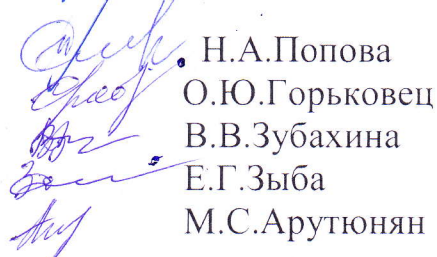 Н.А.Попова
О.Ю.Горьковец
В.В.Зубахина
Е.Г.Зыба
М.С.Арутюнян